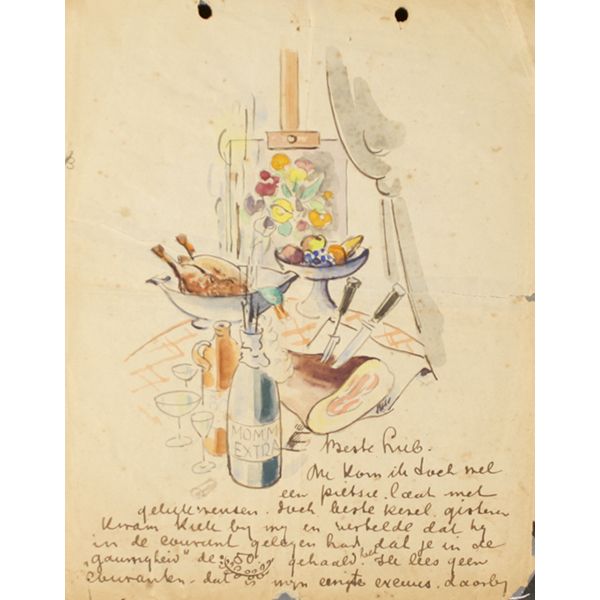 MOMM
EXTRA
Beste Huib.
Nu kom ik toch wel
een pietsie laat met
gelukwensen. doch beste kerel, gisteren
kwam Kiek by my en vertelde dat hy
in de courant gelezen had, dat je in de
"gauwigheid" de 50 gehaald heb. Ik lees geen
couranten. dat is myn eenigste excuus. daarby